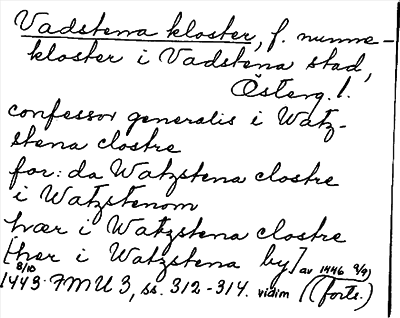 Vadstena kloster, f. nunne-
kloster i Vadstena stad,
Österg. l.
confessor generalis i Watz-
stena clostre
for: da Watzstena clostre
i Watzstenom
hær i Watzstena clostre
[her i Watzstena by] av 1446 9/9)
8/10
1443. FMU 3, ss. 312-314. vidim (forts.)